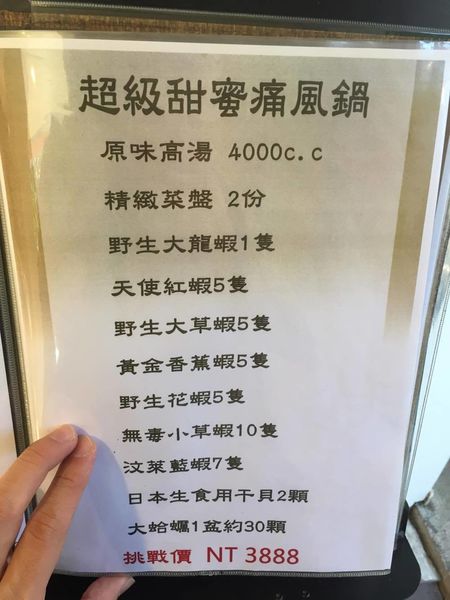 超級甜蜜痛風鍋
原味高湯 4000c.c
精緻菜盤 2份
野生大龍蝦1隻
天使紅蝦5隻
野生大草蝦5隻
黃金香蕉蝦5隻
野生花蝦5隻
無毒小草蝦10隻
汶萊藍蝦7隻
日本生食用干貝2顆
大蛤蠣1盆約30顆
挑戰價 NT 3888